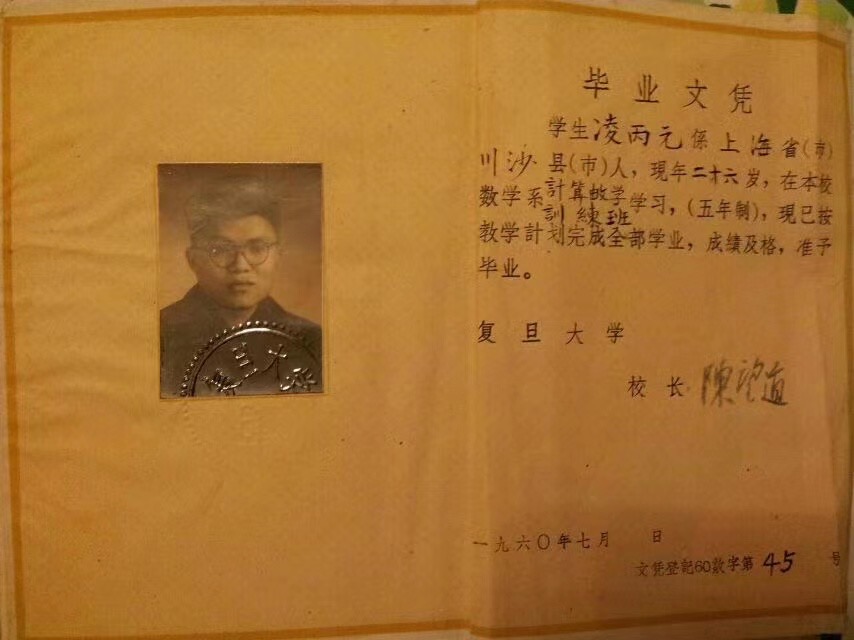 毕业文凭
学生凌丙元係上海省(市)
川沙县(市)人，現年二十六岁，在本校
数学系計算数学訓練班学习，(五年制)，現已按
教学計划完成全部学业，成績及格，准予
毕业。
复旦大学
校长 陳望道
一九六〇年七月 日
文凭登記60数字第45号